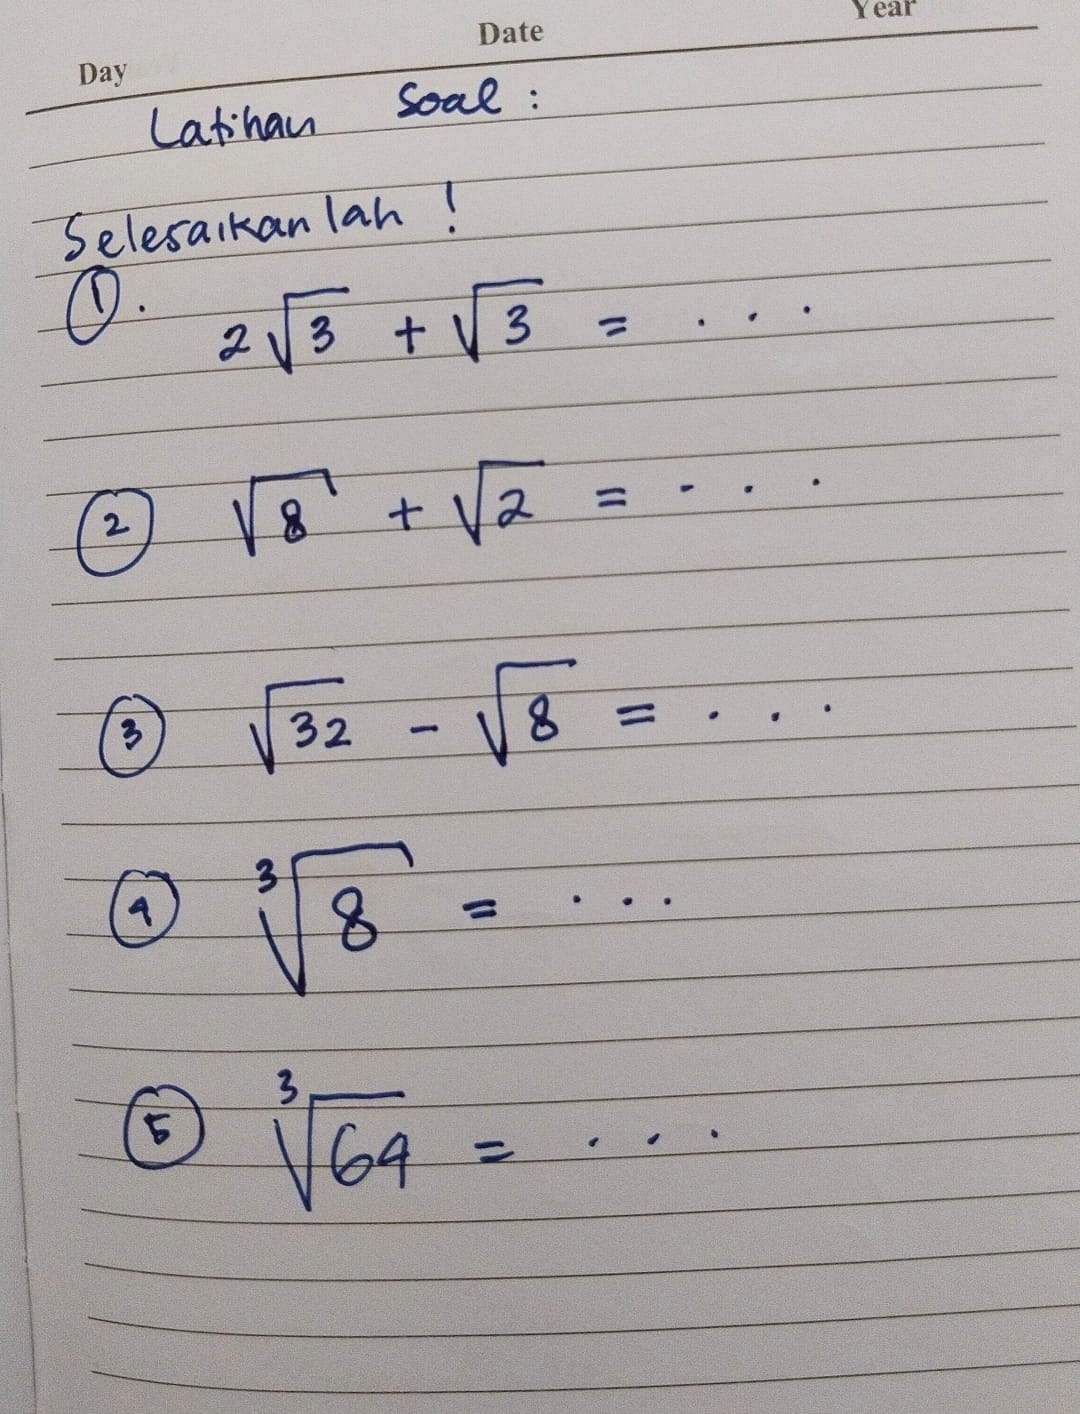 Day Date Year
Latihan Soal :
Selesaikanlah !
①. 2√3 + √3 = . . .
② √8 + √2 = . . . .
③ √32 - √8 = . . . .
④ ³√8 = . . . .
⑤ ³√64 = . . .